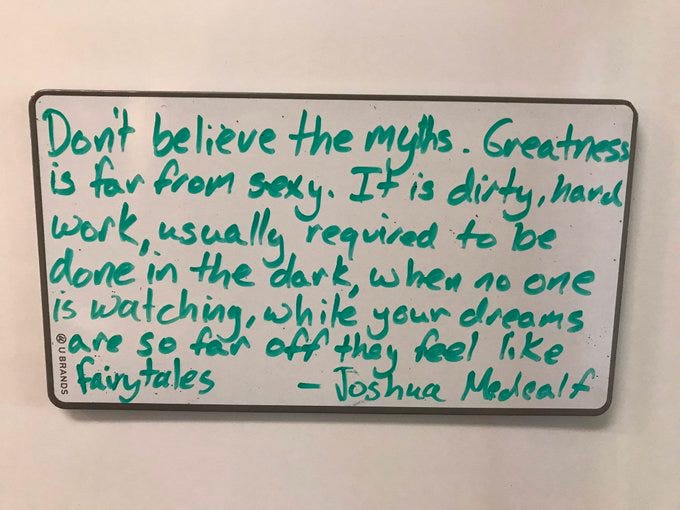 Don't believe the myths. Greatness
is far from sexy. It is dirty, hard
work, usually required to be
done in the dark, when no one
is watching, while your dreams
are so far off they feel like
fairytales - Joshua Medcalf
® U BRANDS